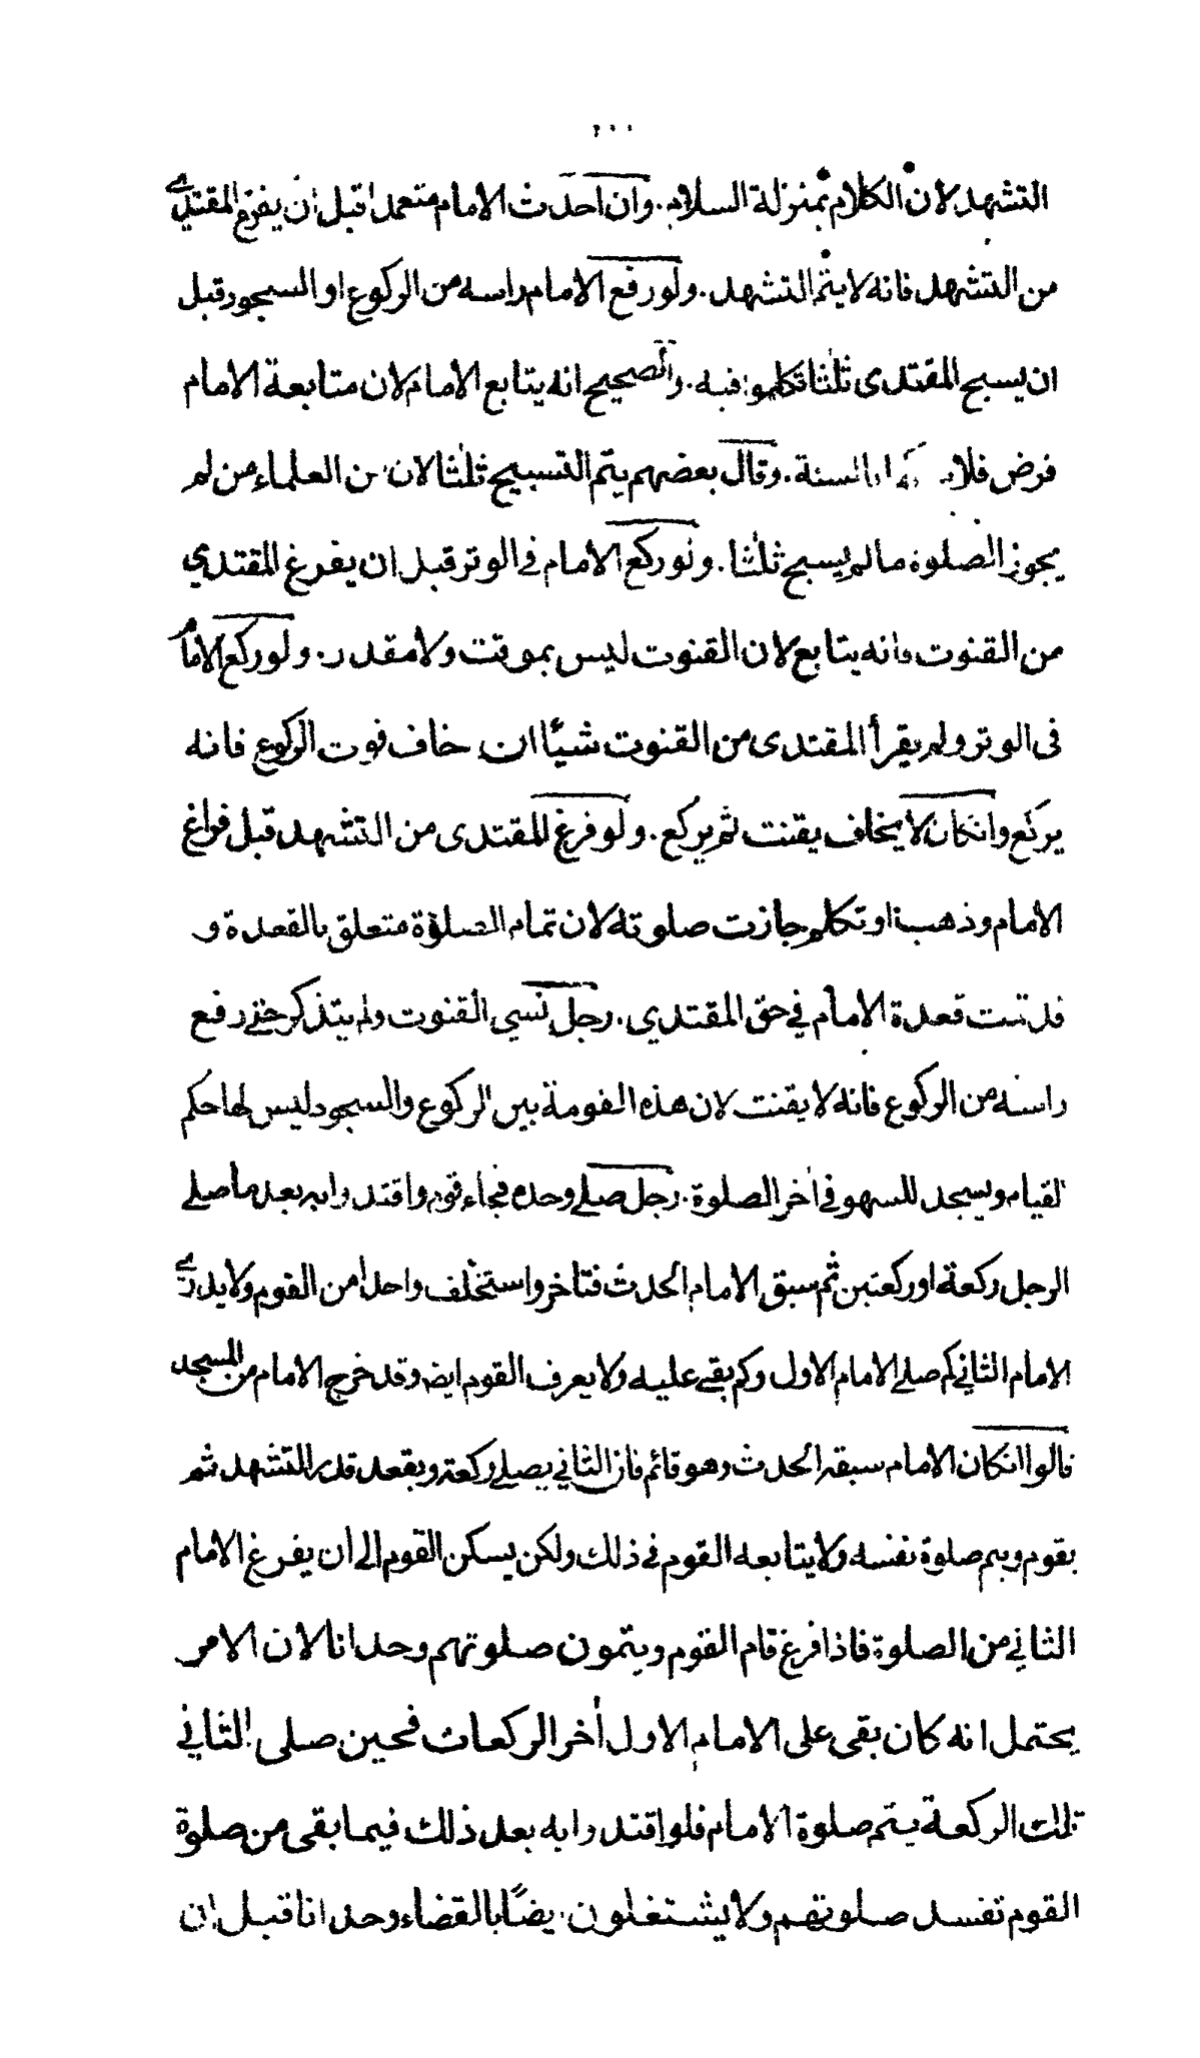 التشهد لان الكلام بمنزلة السلام. وان احدث الامام متعمدا قبل ان يفرغ المقتدي
من التشهد فانه لا يتم التشهد. ولو رفع الامام راسه من الركوع او السجود قبل
ان يسبح المقتدى ثلثا تكلموا فيه. والصحيح انه يتابع الامام لان متابعة الامام
فرض فلا السنة. وقال بعضهم يتم التسبيح ثلثا لان من العلماء من لم
يجوز الصلوة ما لم يسبح ثلثا. ولو ركع الامام في الوتر قبل ان يفرغ المقتدي
من القنوت فانه يتابع لان القنوت ليس بموقت ولا مقدر. ولو ركع الامام
فى الوتر ولم يقرأ المقتدى من القنوت شيئا ان خاف فوت الركوع فانه
يركع وانكان لا يخاف يقنت ثم يركع. ولو فرغ المقتدى من التشهد قبل فراغ
الامام وذهب او تكلم جازت صلوته لان تمام الصلوة متعلق بالقعدة و
قد تمت قعدة الامام في حق المقتدي. رجل نسي القنوت ولم يتذكر حتى رفع
راسه من الركوع فانه لا يقنت لان هذه القومة بين الركوع والسجود ليس لها حكم
القيام ويسجد للسهو في أخر الصلوة. رجل صلى وحده فجاء قوم واقتدوا به بعد ما صلى
الرجل ركعة او ركعتين ثم سبق الامام الحدث فتاخر واستخلف واحدا من القوم ولا يدري
الامام الثاني كم صلى الامام الاول وكم بقي عليه ولا يعرف القوم ايضا وقد خرج الامام من المسجد
قالوا انكان الامام سبقه الحدث وهو قائم فان الثاني يصلي ركعة ويقعد قدر التشهد ثم
يقوم ويتم صلوة نفسه ولا يتابعه القوم في ذلك ولكن يسكن القوم الى ان يفرغ الامام
الثاني من الصلوة فاذا فرغ قام القوم ويتمون صلوتهم وحدانا لان الامر
يحتمل انه كان بقى على الامام الاول أخر الركعات فحين صلى الثاني
تلك الركعة يتم صلوة الامام فلو اقتدوا به بعد ذلك فيما بقى من صلوة
القوم تفسد صلوتهم ولا يشتغلون ايضًا بالقضاء وحدانا قبل ان